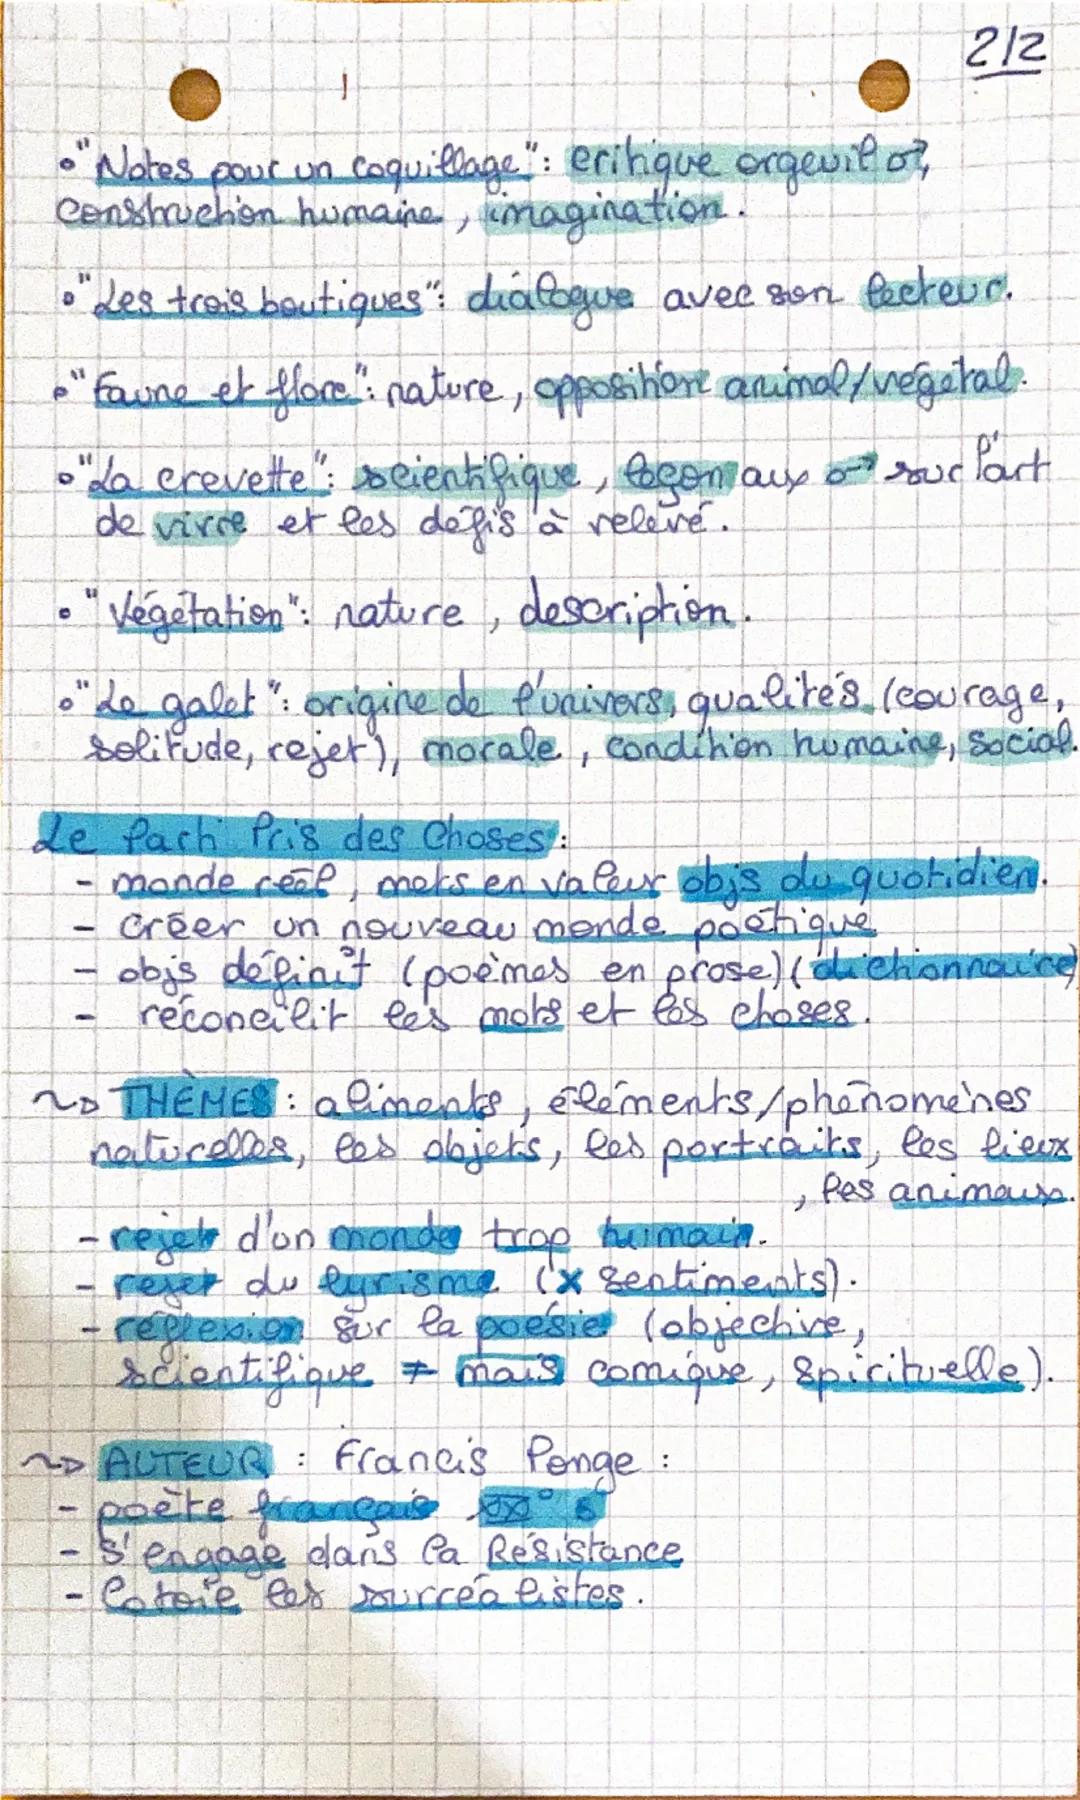 2/2
• "Notes pour un coquillage": critique orgeuil ♂,
construction humaine, imagination.
• "Les trois boutiques": dialogue avec son lecteur.
• "Faune et flore": nature, opposition animal/végétal.
• "La crevette": scientifique, leçon aux ♂ sur l'art
de vivre et les défis à relevé.
• "Végétation": nature, description.
• "Le galet": origine de l'univers, qualités (courage,
solitude, rejet), morale, condition humaine, social.
Le Parti Pris des Choses:
- monde réel, mets en valeur objs du quotidien.
- créer un nouveau monde poétique
- objs définit (poèmes en prose) (dictionnaire)
- réconcilit les mots et les choses.
~> THÈMES: aliments, éléments/phénomènes
naturelles, les objets, les portraits, les lieux
, les animaux.
- rejet d'un monde trop humain.
- rejet du lyrisme (x sentiments).
- réflexion sur la poésie (objective,
scientifique ≠ mais comique, spirituelle).
~> AUTEUR: Francis Ponge:
- poète français
- s'engage dans la Résistance
- Cotoie les surréalistes.